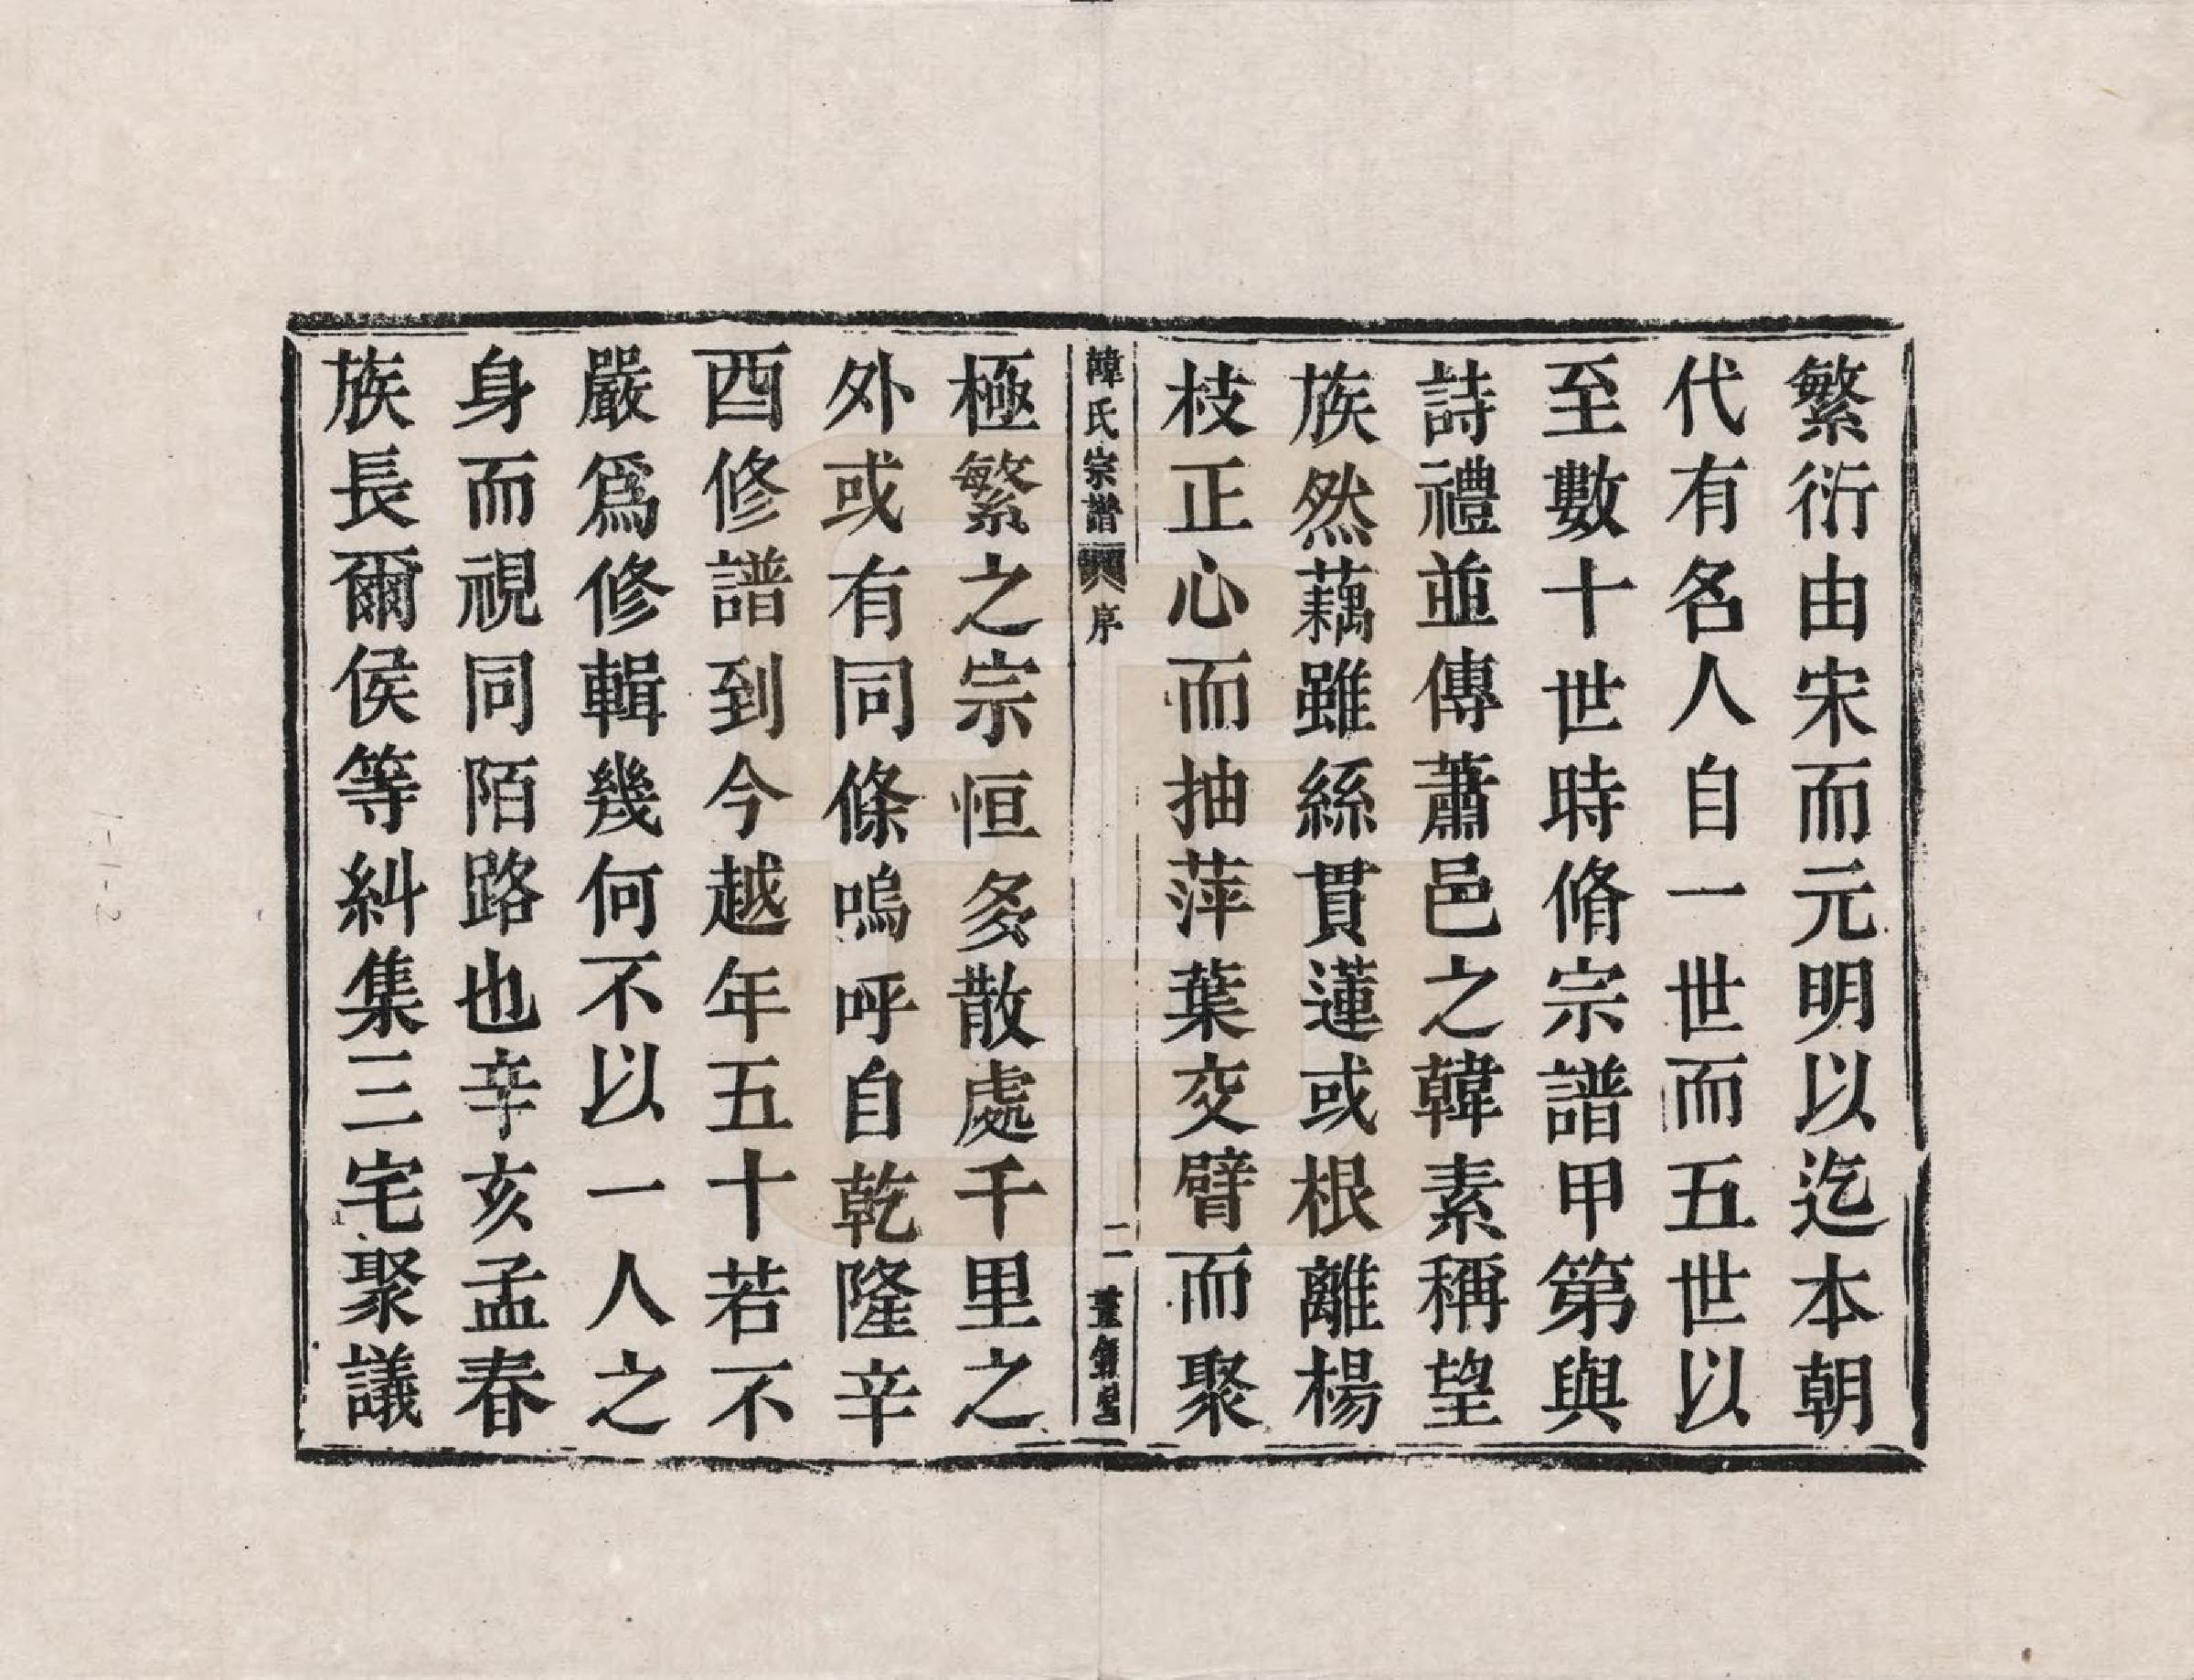 繁衍由宋而元明以迄本朝
代有名人自一世而五世以
至數十世時脩宗譜甲第與
詩禮並傳蕭邑之韓素稱望
族然藕雖絲貫蓮或根離楊
枝正心而抽萍葉交臂而聚
韓氏宗譜 序 二
極繁之宗恒多散處千里之
外或有同條嗚呼自乾隆辛
酉修譜到今越年五十若不
嚴爲修輯幾何不以一人之
身而視同陌路也辛亥孟春
族長爾侯等糾集三宅聚議
1-1-2